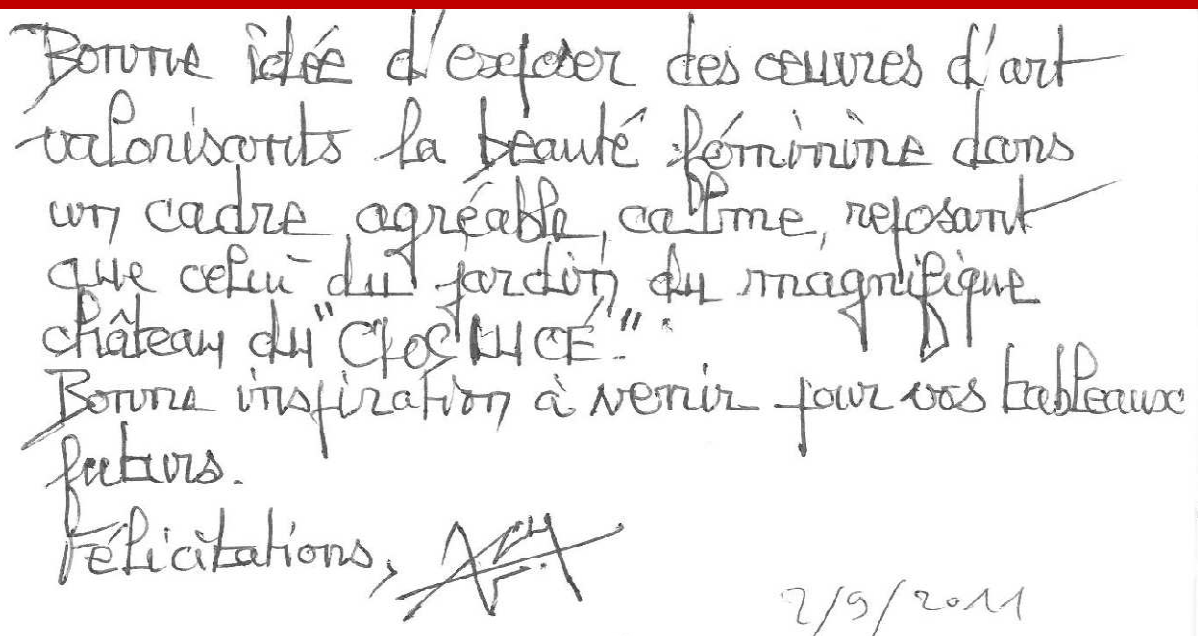 Bonne idée d'exposer des œuvres d'art
valorisants la beauté féminine dans
un cadre agréable, calme, reposant
que celui du jardin du magnifique
château du "CLOS LUCÉ".
Bonne inspiration à venir pour vos tableaux
futurs.
Félicitations,
2/9/2011